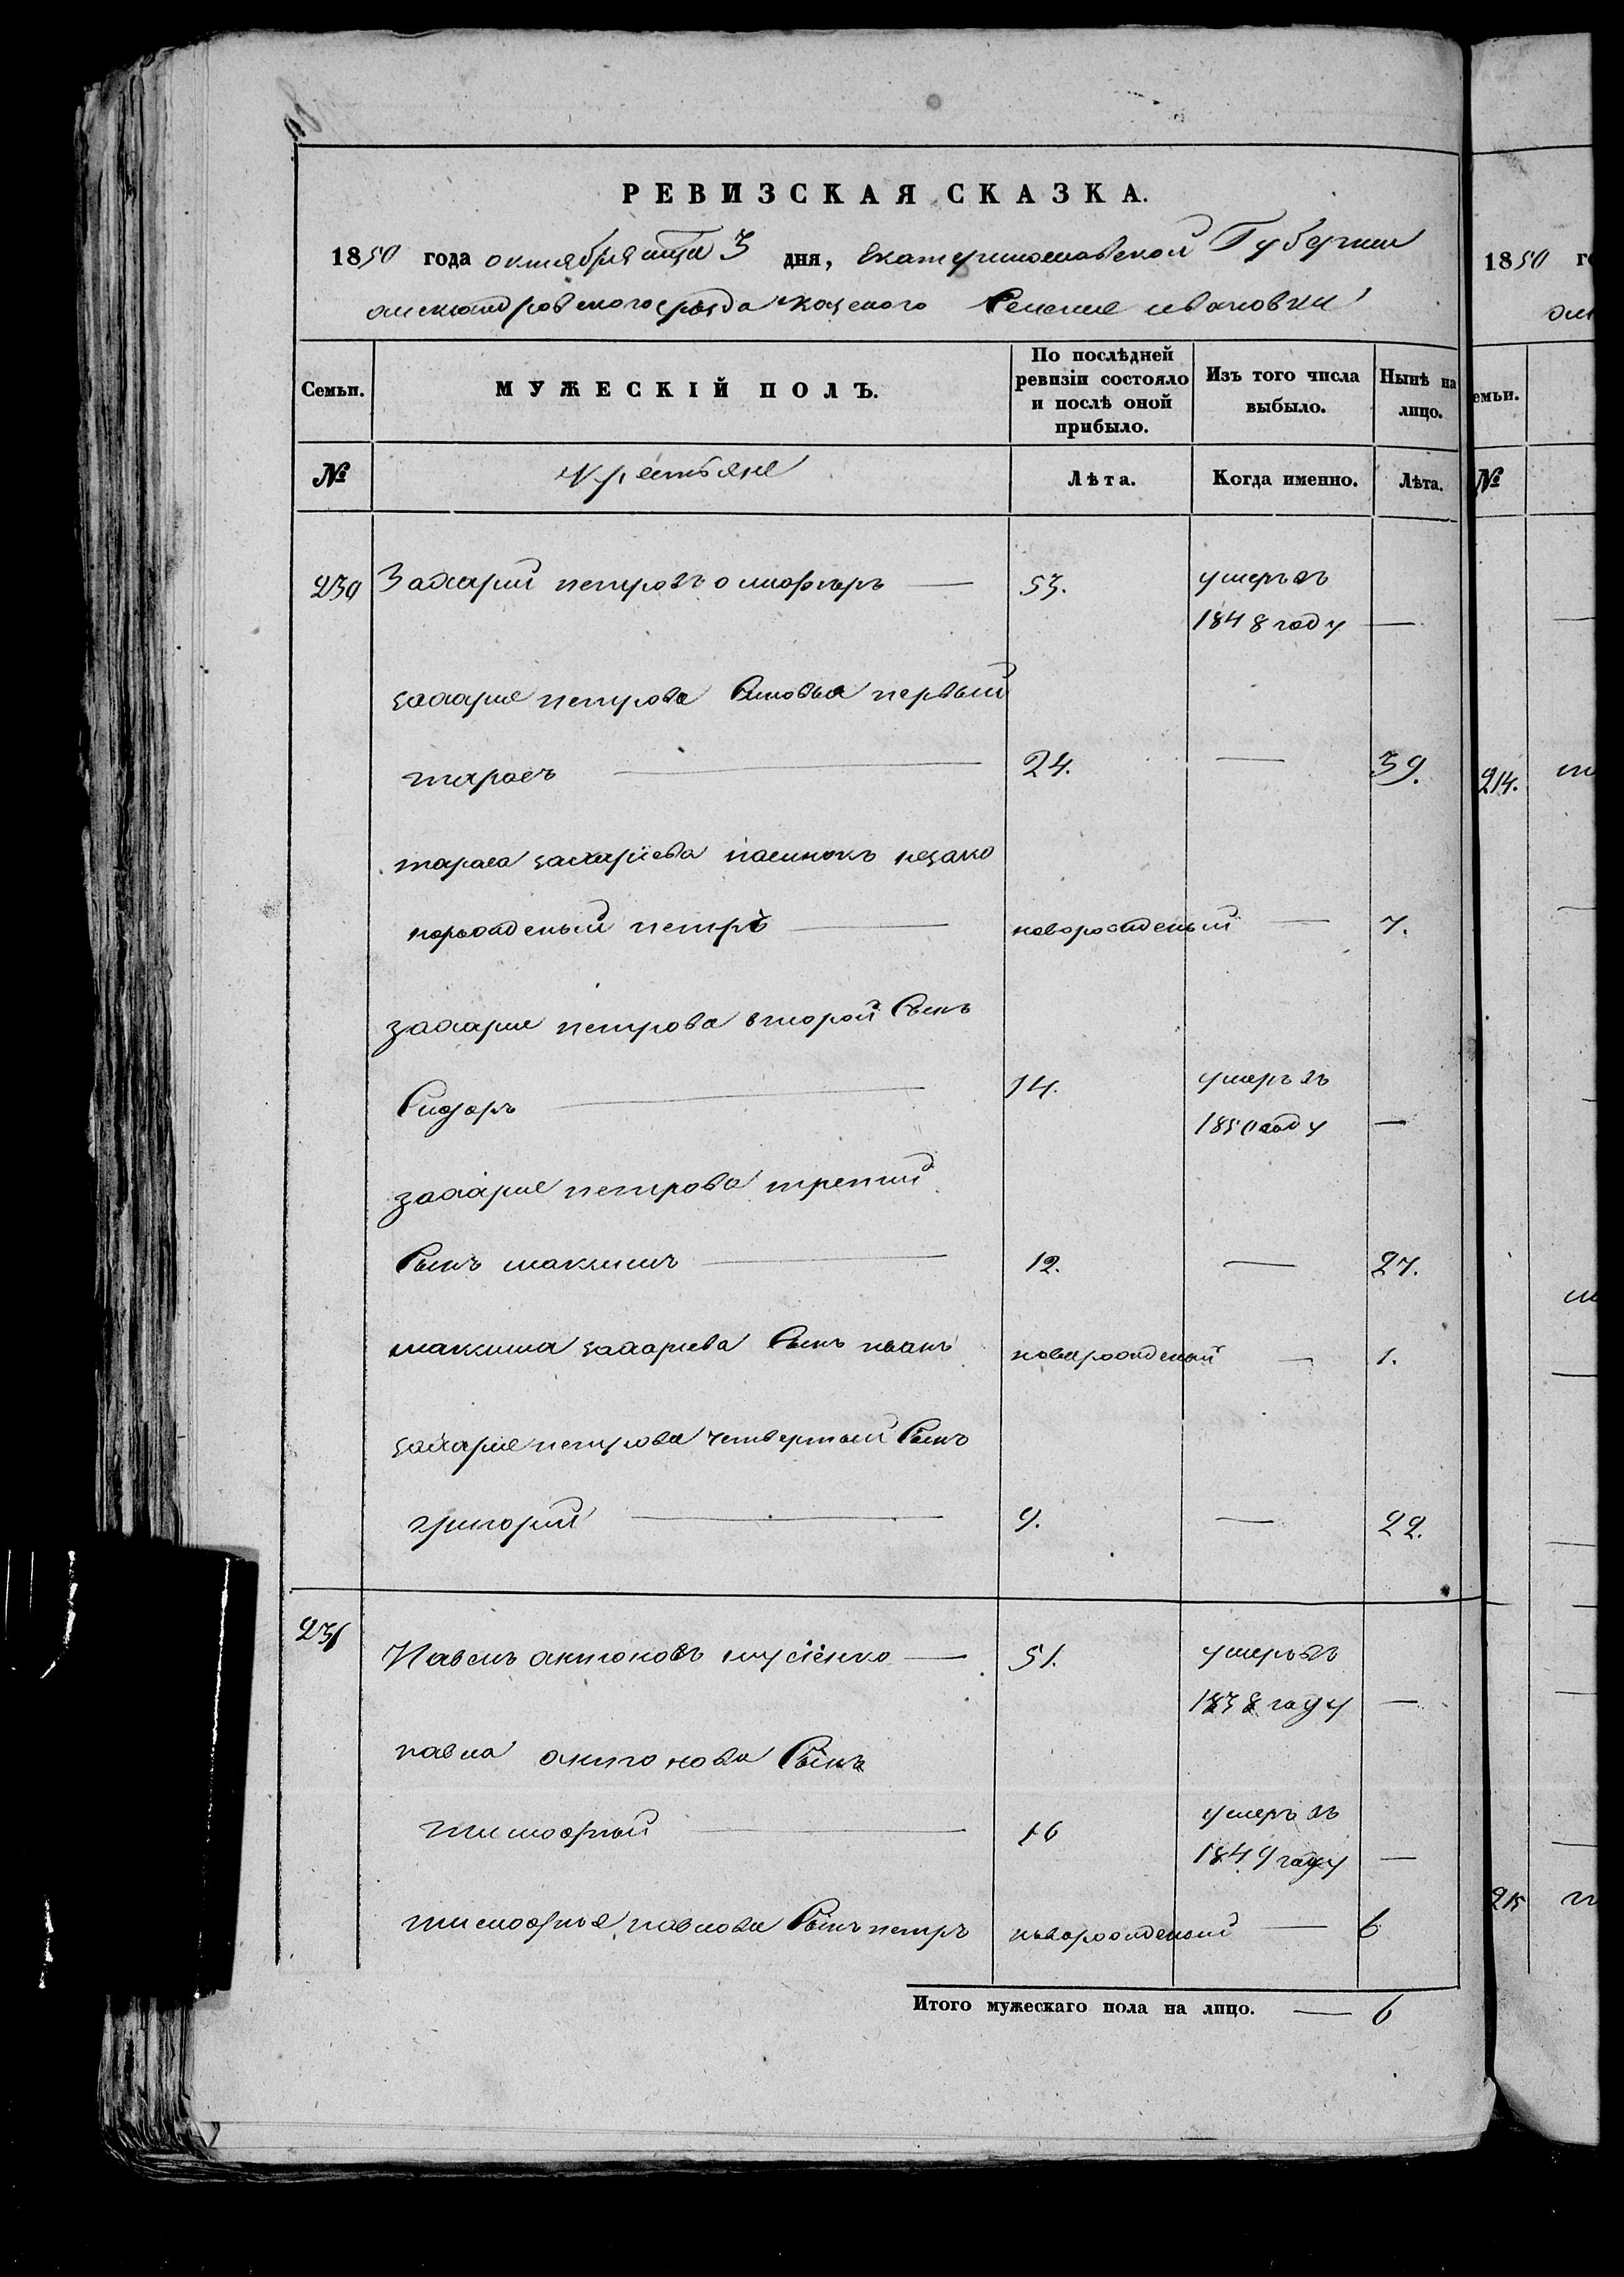 РЕВИЗСКАЯ СКАЗКА.
1850 года октября мца 3 дня, екатеринославской Губернии
александровского уезда казеного Селение ивановки
Семьи.
МУЖЕСКІЙ ПОЛЪ.
По послѣдней ревизіи состояло и послѣ оной прибыло.
Изъ того числа выбыло.
Нынѣ на лицо.
№
крестьяне
Лѣта.
Когда именно.
Лѣта.
230 Захарий петровъ 53. умеръ въ
1848 году —
захарие петрова Сыновья первый
тарасъ — 24. — 39.
тараса захариева пасинокъ незако
норожденый петръ — новорожденый — 7.
захарие петрова второй Сынъ
Сидоръ — 14. умеръ въ
1850 году —
захарие петрова третий
Сынъ максимъ — 12. — 27.
максима захариева Сынъ иванъ новорожденый — 1.
захарие петрова четвертый Сынъ
григорий — 9. — 22.
231 Павелъ антоновъ — 51. умеръ въ
1838 году —
павла антонова Сынъ
тимофей — 16 умеръ въ
1849 году —
тимофея павлова Сынъ петръ новорожденый — 6
Итого мужескаго пола на лицо. — 6
1850
№
214.
215